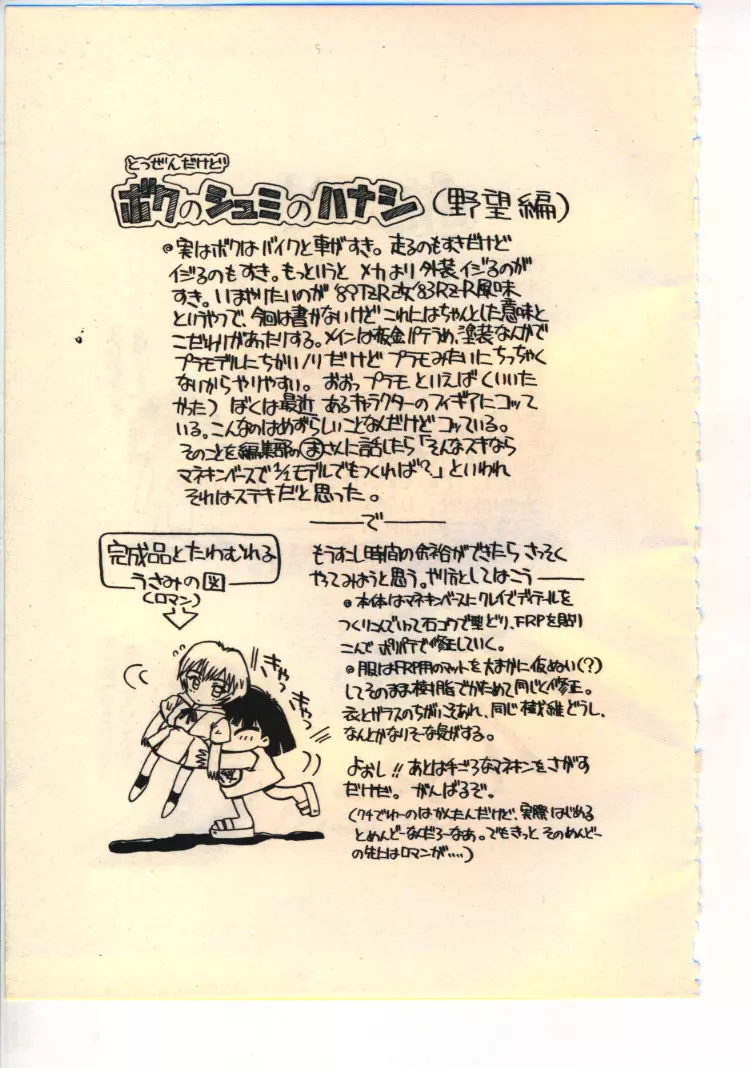 とつぜんだけど
ボクのシュミのハナシ(野望編)
◎実はボクはバイクと車がすき。走るのもすきだけど
イジるのもすき。もっというと メカより外装イジるのが
すき。いまやりたいのが '89TZR改'83RZ-R風味
というやつで、今回は書かないけど これにはちゃんとした意味と
こだわりがあったりする。メインは板金パテうめ、塗装なんかで
プラモデルにちかいノリだけど プラモみたいにちっちゃく
ないからやりやすい。おおっプラモ といえば(いいた
かった) ぼくは最近 あるキャラクターのフィギアにコッて
いる。こんなのはめずらしいことなんだけどコッている。
そのことを編集部のまさんに話したら「そんなスキなら
マネキンベースで1/1モデルでもつくれば?」といわれ
それはステキだと思った。
――で――
完成品とたわむれる
うさみの図
(ロマン)
もうすこし時間の余裕ができたら さっそく
やってみようと思う。やり方としてはこう――
◎本体はマネキンベースにクレイでディテールを
つくりこんでいって石コウで型どり、FRPを貼り
こんで ポリパテで修正していく。
◎服はFRP用のマットを大まかに仮ぬい(?)
してそのまま樹脂でかためて同じく修正。
衣とガラスのちがいこそあれ、同じ繊維どうし、
なんとかなりそーな気がする。
きゃっ
きゃっ
よおし!! あとは手ごろなマネキンをさがす
だけだ。がんばるぞ。
(クチでゆーのはかんたんだけど、実際はじめる
とめんどーなんだろーなあ。でもきっと そのめんどー
の先にはロマンが‥‥)